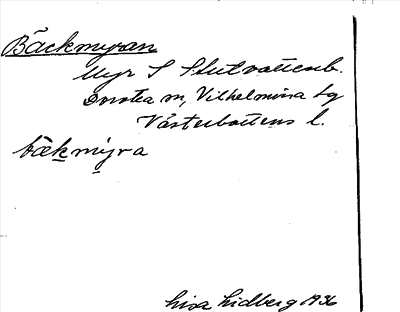 Bäckmyran
Myr S Slutvattenb.
Dorotea sn, Vilhelmina tg
Västerbottens l.
bækmỵra
Lisa Lidberg 1936